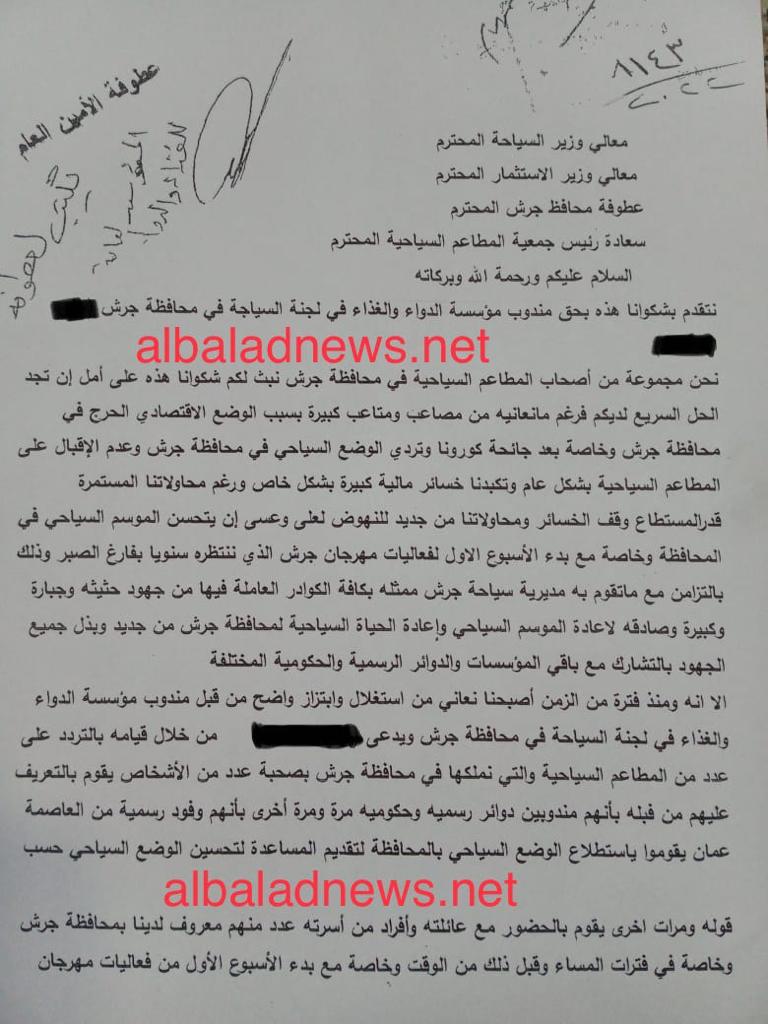 ٨١٤٣
٢٠٢٢
عطوفة الأمين العام
معالي وزير السياحة المحترم
معالي وزير الاستثمار المحترم
عطوفة محافظ جرش المحترم
سعادة رئيس جمعية المطاعم السياحية المحترم
السلام عليكم ورحمة الله وبركاته
نتقدم بشكوانا هذه بحق مندوب مؤسسة الدواء والغذاء في لجنة السياجة في محافظة جرش
albaladnews.net
نحن مجموعة من أصحاب المطاعم السياحية في محافظة جرش نبث لكم شكوانا هذه على أمل إن تجد
الحل السريع لديكم فرغم مانعانيه من مصاعب ومتاعب كبيرة بسبب الوضع الاقتصادي الحرج في
محافظة جرش وخاصة بعد جائحة كورونا وتردي الوضع السياحي في محافظة جرش وعدم الإقبال على
المطاعم السياحية بشكل عام وتكبدنا خسائر مالية كبيرة بشكل خاص ورغم محاولاتنا المستمرة
قدرالمستطاع وقف الخسائر ومحاولاتنا من جديد للنهوض لعلى وعسى إن يتحسن الموسم السياحي في
المحافظة وخاصة مع بدء الأسبوع الاول لفعاليات مهرجان جرش الذي ننتظره سنويا بفارغ الصبر وذلك
بالتزامن مع ماتقوم به مديرية سياحة جرش ممثله بكافة الكوادر العاملة فيها من جهود حثيثه وجبارة
وكبيرة وصادقه لاعادة الموسم السياحي وإعادة الحياة السياحية لمحافظة جرش من جديد وبذل جميع
الجهود بالتشارك مع باقي المؤسسات والدوائر الرسمية والحكومية المختلفة
الا انه ومنذ فترة من الزمن أصبحنا نعاني من استغلال وابتزاز واضح من قبل مندوب مؤسسة الدواء
والغذاء في لجنة السياحة في محافظة جرش ويدعى من خلال قيامه بالتردد على
عدد من المطاعم السياحية والتي نملكها في محافظة جرش بصحبة عدد من الأشخاص يقوم بالتعريف
عليهم من قبله بأنهم مندوبين دوائر رسميه وحكوميه مرة ومرة أخرى بأنهم وفود رسمية من العاصمة
عمان يقوموا ياستطلاع الوضع السياحي بالمحافظة لتقديم المساعدة لتحسين الوضع السياحي حسب
albaladnews.net
قوله ومرات اخرى يقوم بالحضور مع عائلته وأفراد من أسرته عدد منهم معروف لدينا بمحافظة جرش
وخاصة في فترات المساء وقبل ذلك من الوقت وخاصة مع بدء الأسبوع الأول من فعاليات مهرجان